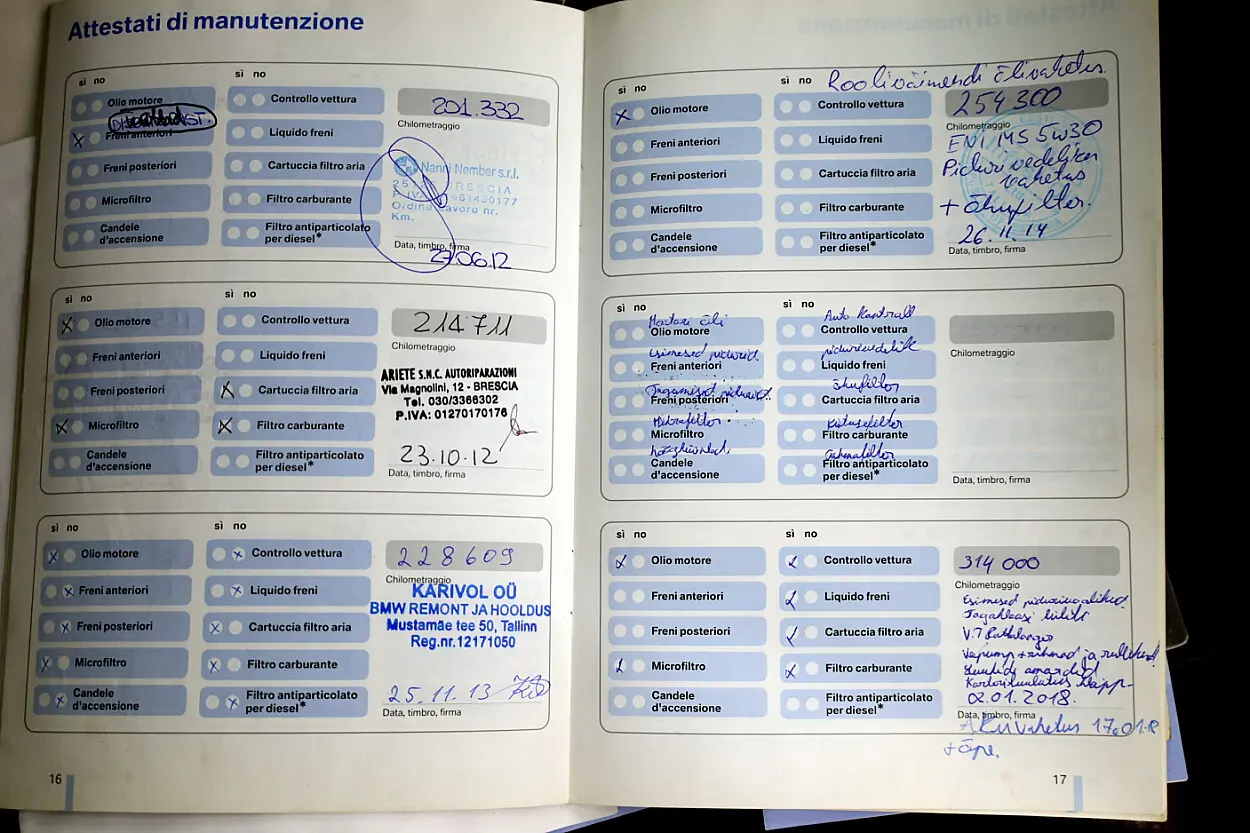 Attestati di manutenzione
sì no
sì no
Olio motore
Freni anteriori
Freni posteriori
Microfiltro
Candele
d'accensione
Controllo vettura
Liquido freni
Cartuccia filtro aria
Filtro carburante
Filtro antiparticolato
per diesel*
201.332
Chilometraggio
Nanni Nember s.r.l.
BRESCIA
Km.
Data, timbro, firma
27.06.12
sì no
sì no
Olio motore
Freni anteriori
Freni posteriori
Microfiltro
Candele
d'accensione
Controllo vettura
Liquido freni
Cartuccia filtro aria
Filtro carburante
Filtro antiparticolato
per diesel*
214711
Chilometraggio
ARIETE S.N.C. AUTORIPARAZIONI
Via Magnolini, 12 - BRESCIA
Tel. 030/3366302
P.IVA: 01270170176
23.10.12
Data, timbro, firma
sì no
sì no
Olio motore
Freni anteriori
Freni posteriori
Microfiltro
Candele
d'accensione
Controllo vettura
Liquido freni
Cartuccia filtro aria
Filtro carburante
Filtro antiparticolato
per diesel*
228609
Chilometraggio
KARIVOL OÜ
BMW REMONT JA HOOLDUS
Mustamäe tee 50, Tallinn
Reg.nr.12171050
25.11.13
Data, timbro, firma
16
sì no
sì no
Roolivõimendi õlivahetus.
Olio motore
Freni anteriori
Freni posteriori
Microfiltro
Candele
d'accensione
Controllo vettura
Liquido freni
Cartuccia filtro aria
Filtro carburante
Filtro antiparticolato
per diesel*
254300
Chilometraggio
ENI MS 5W30
Piduri vedeliku
vahetus
+ õhufilter.
26.11.14
Data, timbro, firma
sì no
sì no
Mootori õli
Olio motore
Esimesed pidurid
Freni anteriori
Tagumised pidurid
Freni posteriori
Microfiltro
Candele
d'accensione
Auto kontroll
Controllo vettura
pidurivedelik
Liquido freni
õhufilter
Cartuccia filtro aria
kütusefilter
Filtro carburante
Filtro antiparticolato
per diesel*
Chilometraggio
Data, timbro, firma
sì no
sì no
Olio motore
Freni anteriori
Freni posteriori
Microfiltro
Candele
d'accensione
Controllo vettura
Liquido freni
Cartuccia filtro aria
Filtro carburante
Filtro antiparticolato
per diesel*
314 000
Chilometraggio
Esimesed
02.01.2018.
Data, timbro, firma
Aku vahetus 17.01.18
17